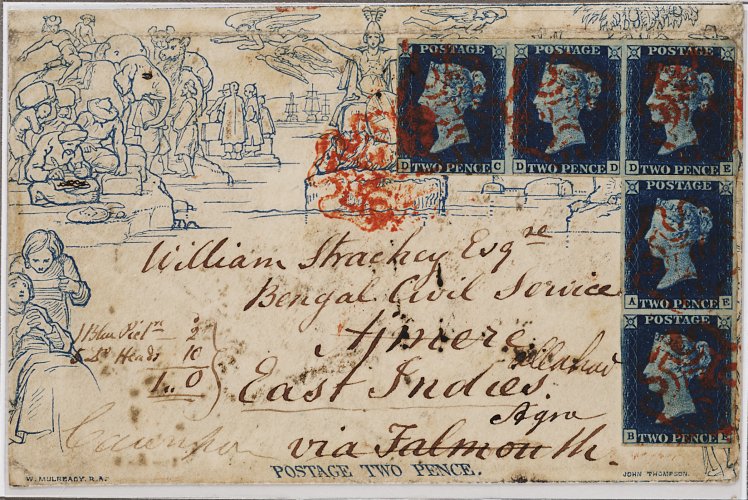 POSTAGE POSTAGE POSTAGE
TWO PENCE TWO PENCE TWO PENCE
D C D D D E
POSTAGE
A TWO PENCE E
POSTAGE
B TWO PENCE E
William Strachey Esqre
Bengal Civil Service
Ajmere
allahad
East Indies.
Agra
via Falmouth.
1 Blue Pict 2
5 Do Heads 10
1 " 0
Cawnpor
POSTAGE TWO PENCE.
W. MULREADY. R.A.
JOHN THOMPSON.